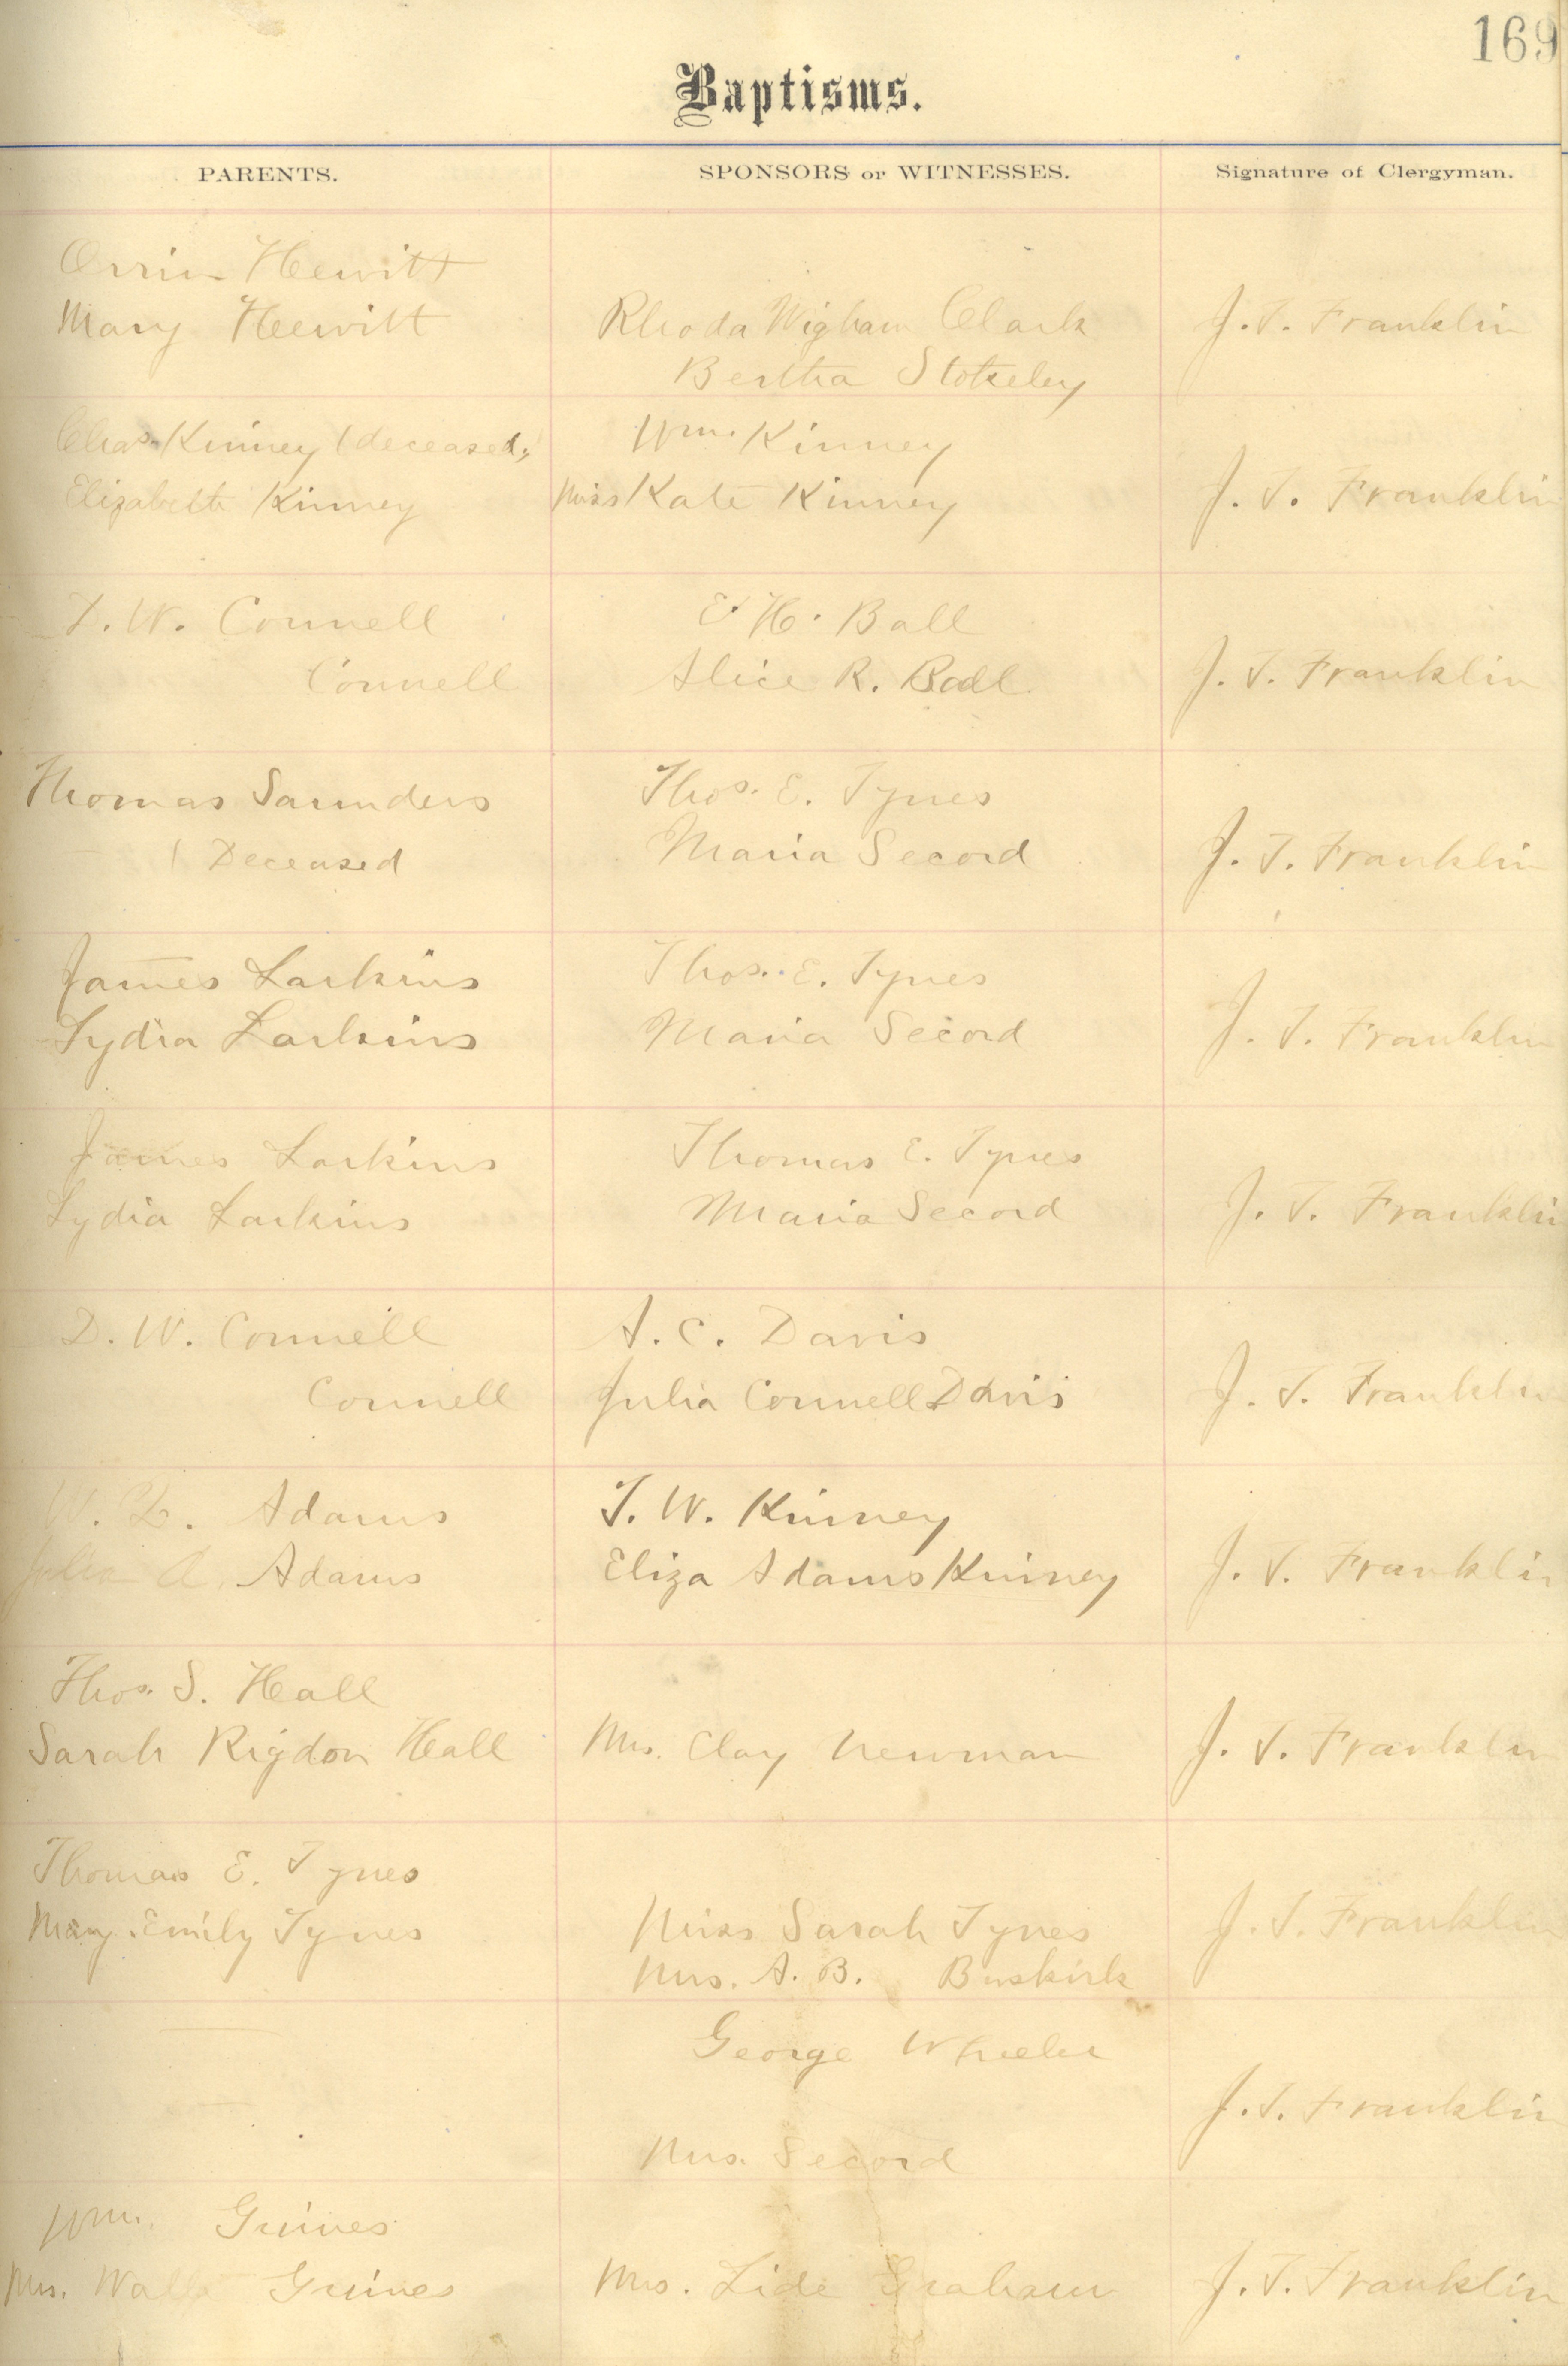 169
Baptisms.
PARENTS.
SPONSORS or WITNESSES.
Signature of Clergyman.
Orrin Hewitt
Mary Hewitt
Rhoda Wigham Clark
Bertha
J. T. Franklin
Chas. Kinney (deceased)
Elizabeth Kinney
Wm. Kinney
Miss Kate Kinney
J. T. Franklin
D. W. Connell
Connell
E. H. Ball
Alice R. Ball
J. T. Franklin
Thomas Saunders
( Deceased
Thos. E. Tynes
Maria Secord
J. T. Franklin
James Larkins
Lydia Larkins
Thos. E. Tynes
Maria Secord
J. T. Franklin
James Larkins
Lydia Larkins
Thomas E. Tynes
Maria Secord
J. T. Franklin
D. W. Connell
Connell
A. C. Davis
Julia Connell Davis
J. T. Franklin
W. L. Adams
Julia A. Adams
T. W. Kinney
Eliza Adams Kinney
J. T. Franklin
Thos. S. Hall
Sarah Rigdon Hall
Mrs. Clay Newman
J. T. Franklin
Thomas E. Tynes
Mary Emily Tynes
Miss Sarah Tynes
Mrs. A. B. Buskirk
J. T. Franklin
George Wheeler
Mrs. Secord
J. T. Franklin
Wm. Grimes
Mrs. Grimes
Mrs. Lide Graham
J. T. Franklin